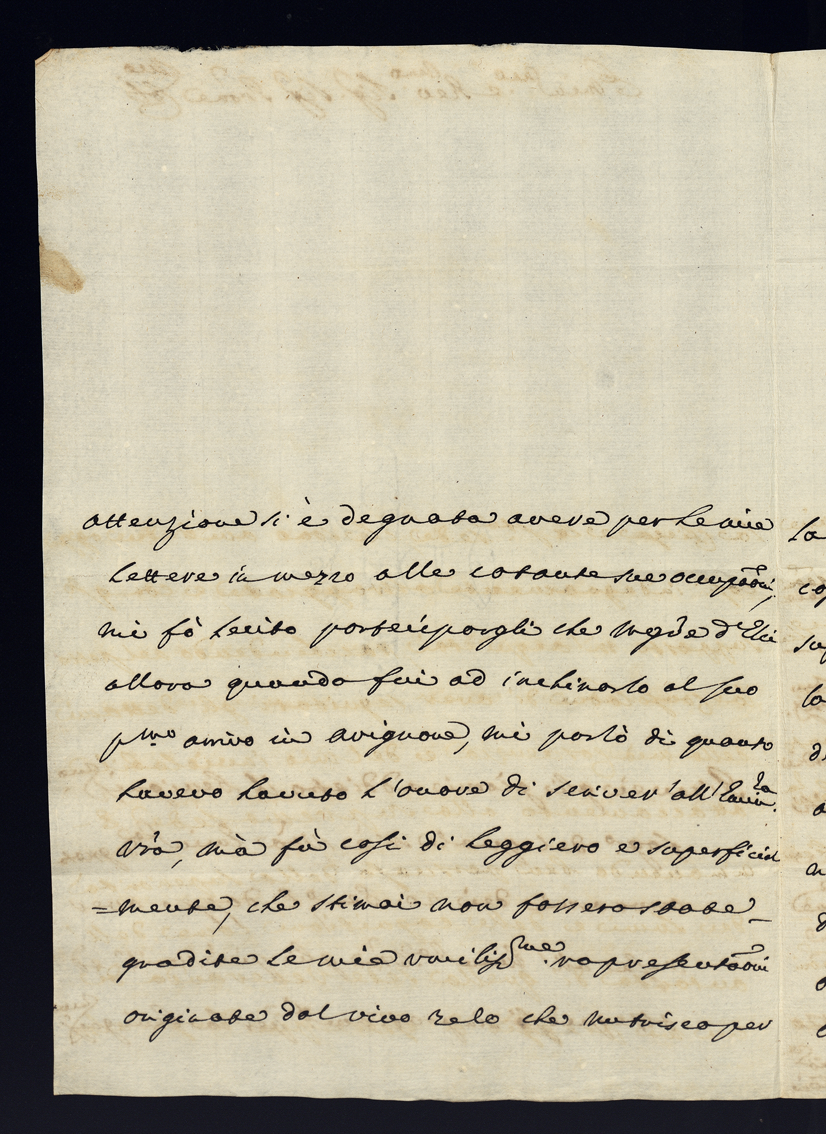 attenzione si è degnata avere per le mie
lettere in mezzo alle cotante sue occupaõni,
mi fò lecito partecipargli che Mgre d'Elci
allora quando fui ad inchinarlo al suo
pmo arrivo in Avignone, mi parlò di quanto
havevo havuto l'onore di scriver' all'Emin.za
vra, mà fù cosi di leggiero e superficial
=mente, che stimai non fossero state
gradite le mie umiliss.me rapresentaõni
originate dal vivo zelo che nutrisco per